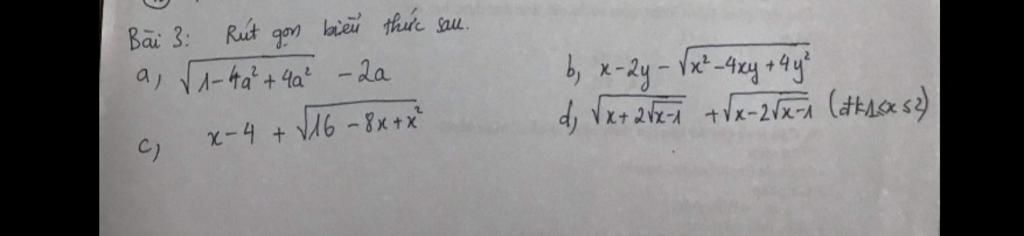 Bài 3: Rút gọn biểu thức sau.
a, √(1-4a²+4a²) -2a
b, x-2y-√(x²-4xy+4y²)
c, x-4+√(16-8x+x²)
d, √(x+2√(x-1)) +√(x-2√(x-1)) (đk1≤x≤2)